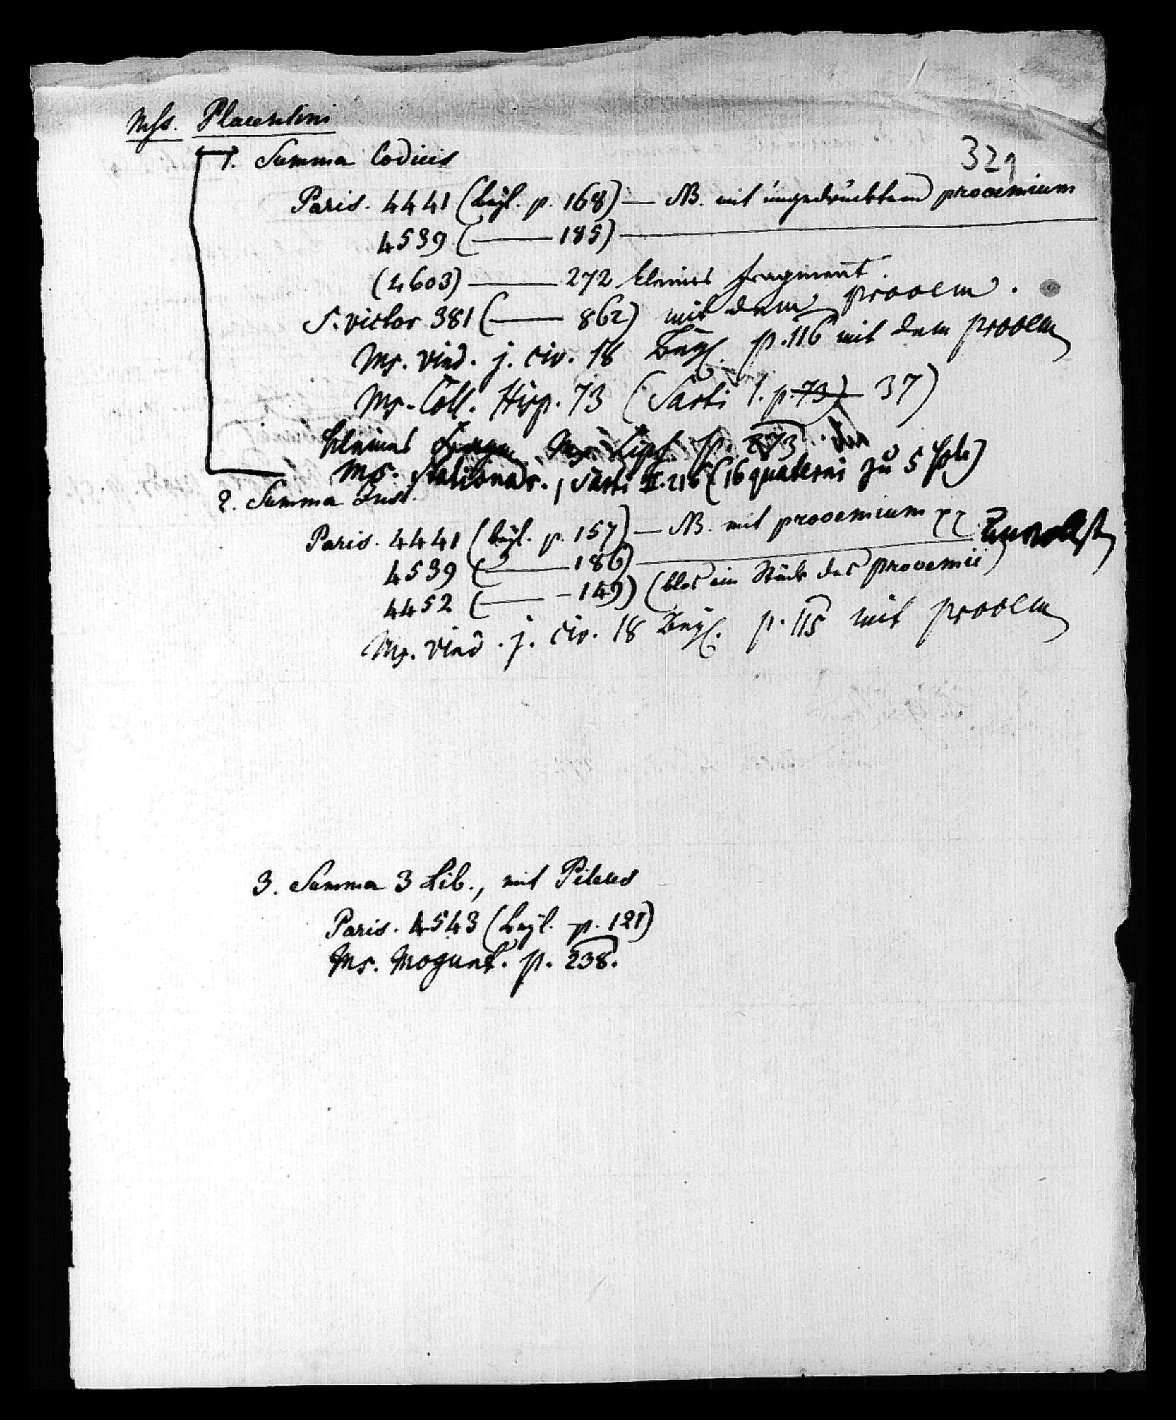 Mss. Placentini
1. Summa Codicis
329
Paris. 4441 (Beyl. p. 168) — NB. mit ungedrucktem prooemium
4539 (—— 185) ——
(4603) —— 272 kleines fragment.
S. Victor 381 (—— 862) mit dem prooem.
Ms. vind. j. civ. 18 Beyl. p. 116 mit dem prooem
Ms. Coll. Hisp. 73 (Sarti I. p. 73) 37)
kleines Ms. Lips. p. 873.
Ms. stationar., Sarti II. 216 (16 quaterni zu 5 sol.)
2. Summa Inst.
Paris. 4441 (Beyl. p. 157) — NB. mit prooemium
4539 (—— 186) ——
4452 (—— 149) (blos ein Stück des prooemii)
Ms. vind. j. civ. 18 Beyl. p. 115 mit prooem
3. Summa 3 Lib., mit Pileus
Paris. 4543 (Beyl. p. 121)
Ms. Mogunt. p. 238.